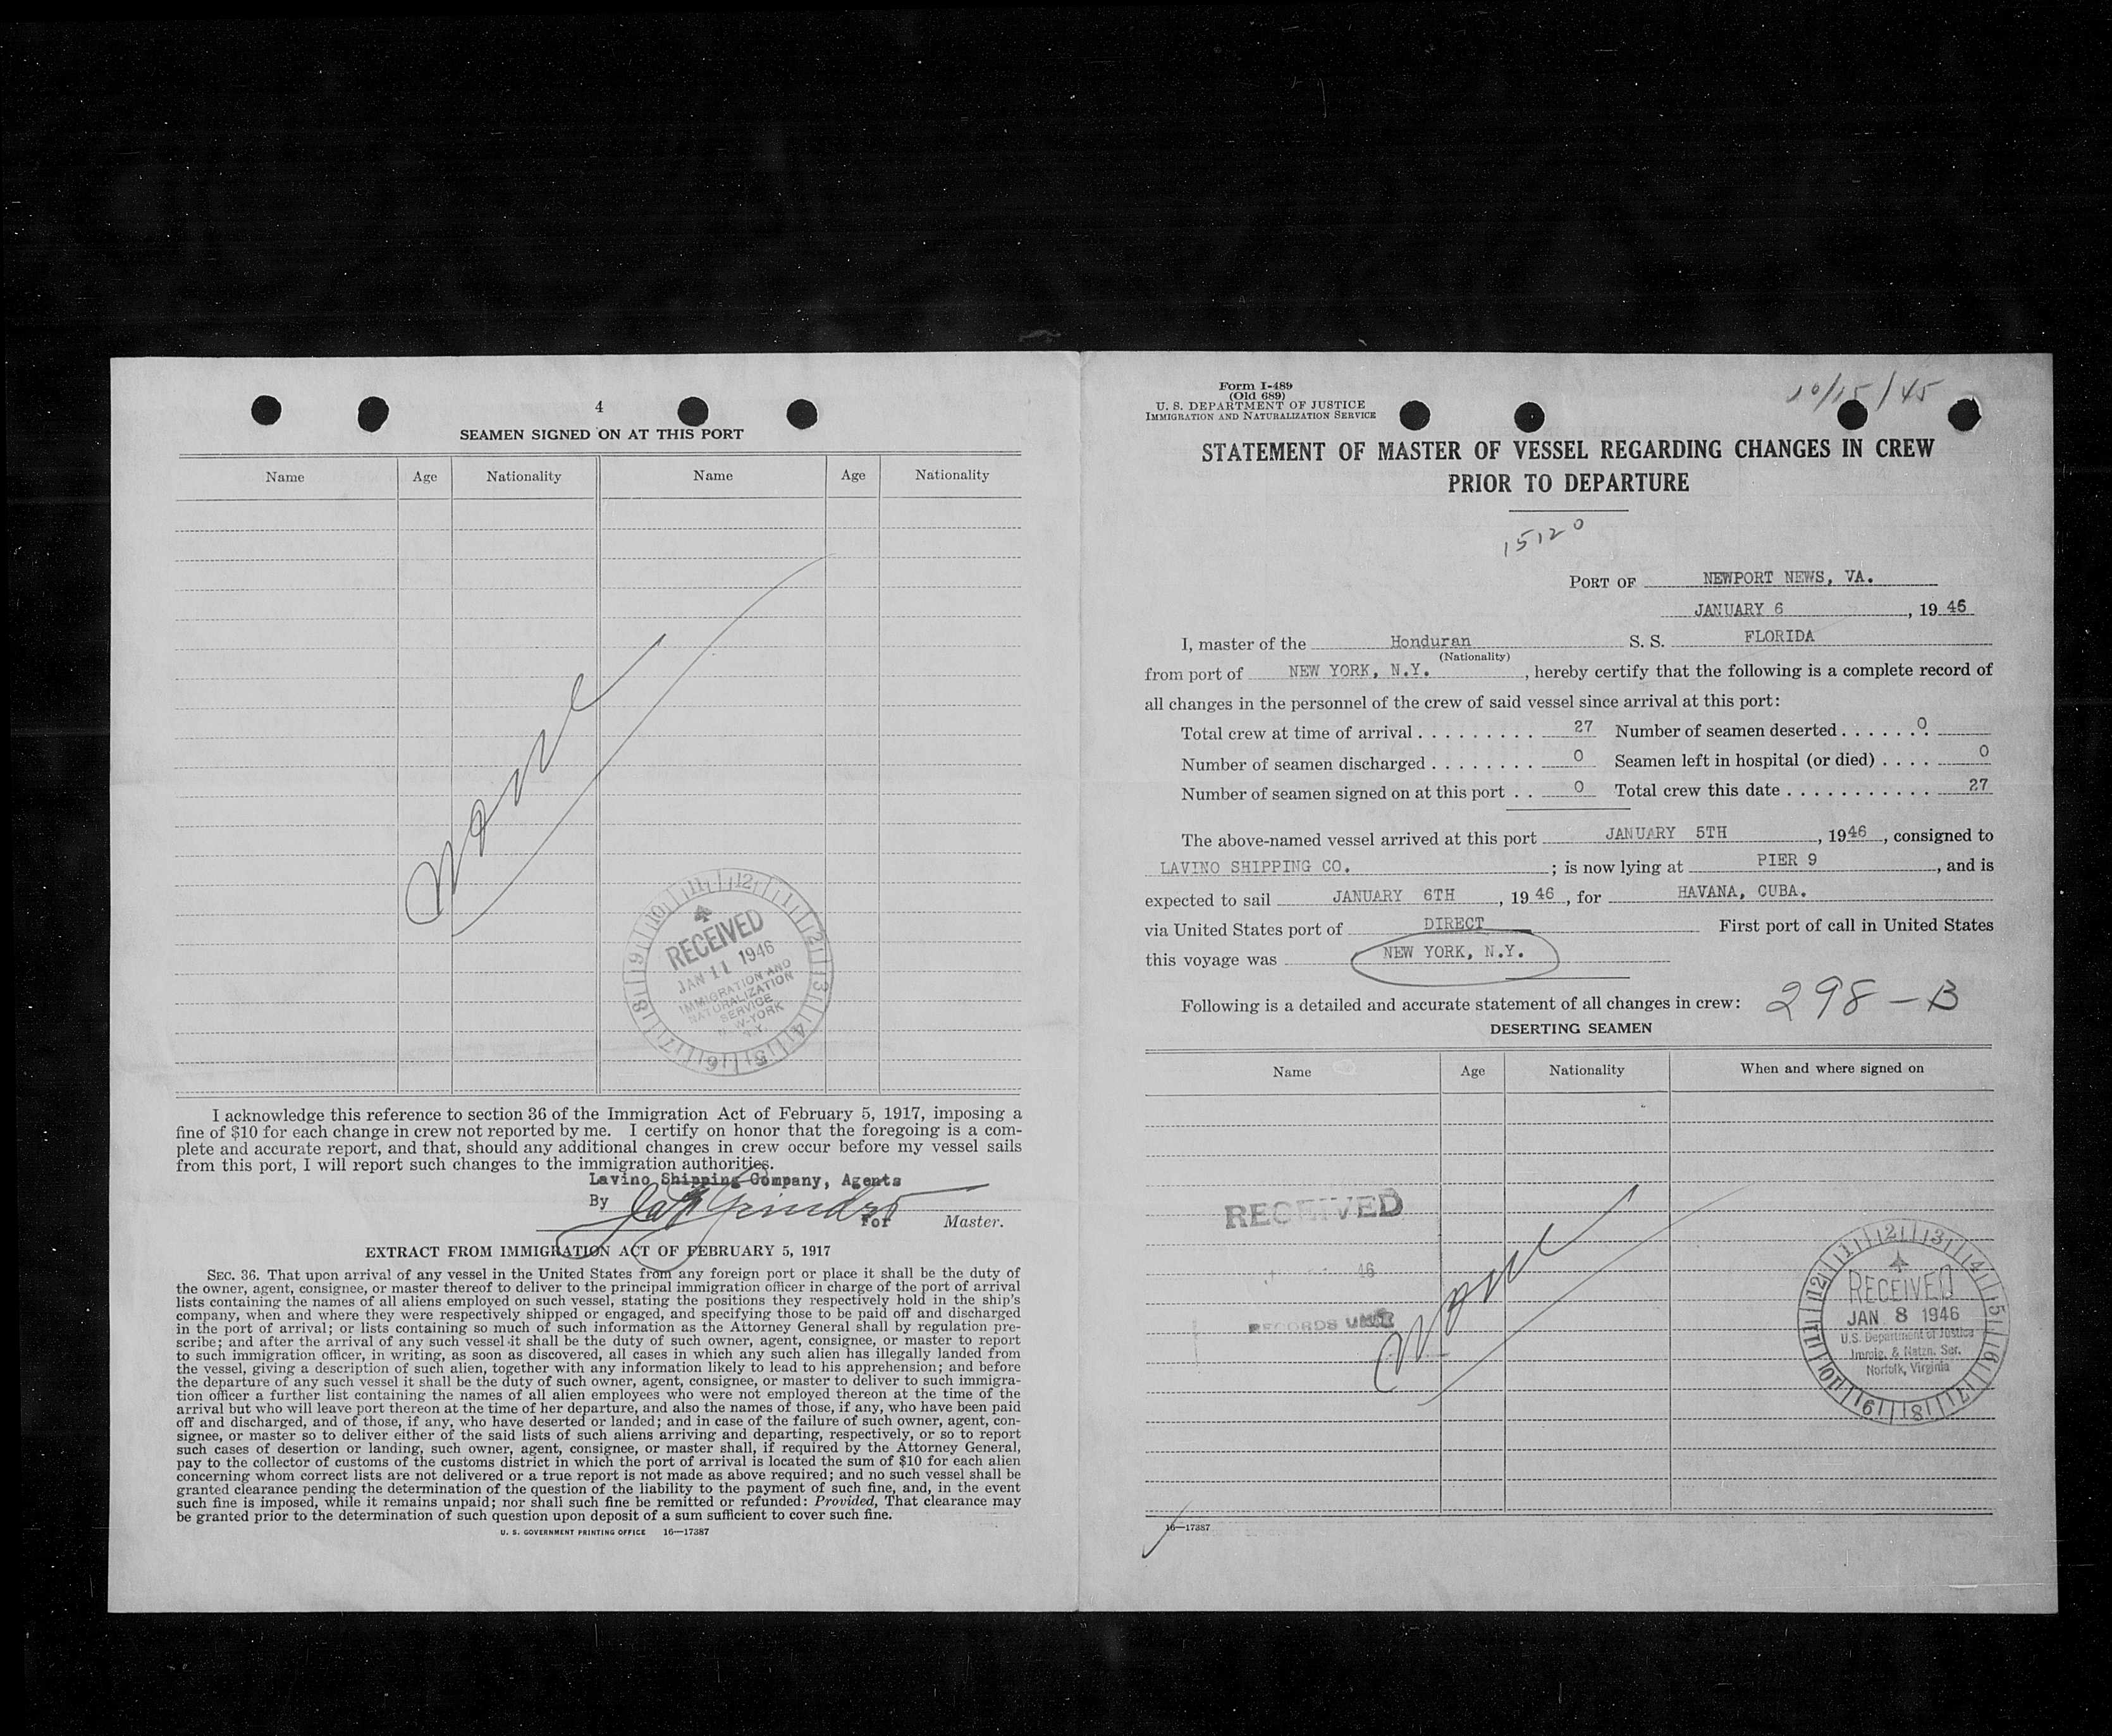 4
SEAMEN SIGNED ON AT THIS PORT
Name Age Nationality Name Age Nationality
None
RECEIVED
JAN 11 1946
IMMIGRATION AND
NATURALIZATION
SERVICE
NEW YORK
N.Y.
I acknowledge this reference to section 36 of the Immigration Act of February 5, 1917, imposing a
fine of $10 for each change in crew not reported by me. I certify on honor that the foregoing is a com-
plete and accurate report, and that, should any additional changes in crew occur before my vessel sails
from this port, I will report such changes to the immigration authorities.
Lavino Shipping Company, Agents
By
For Master.
EXTRACT FROM IMMIGRATION ACT OF FEBRUARY 5, 1917
SEC. 36. That upon arrival of any vessel in the United States from any foreign port or place it shall be the duty of
the owner, agent, consignee, or master thereof to deliver to the principal immigration officer in charge of the port of arrival
lists containing the names of all aliens employed on such vessel, stating the positions they respectively hold in the ship's
company, when and where they were respectively shipped or engaged, and specifying those to be paid off and discharged
in the port of arrival; or lists containing so much of such information as the Attorney General shall by regulation pre-
scribe; and after the arrival of any such vessel it shall be the duty of such owner, agent, consignee, or master to report
to such immigration officer, in writing, as soon as discovered, all cases in which any such alien has illegally landed from
the vessel, giving a description of such alien, together with any information likely to lead to his apprehension; and before
the departure of any such vessel it shall be the duty of such owner, agent, consignee, or master to deliver to such immigra-
tion officer a further list containing the names of all alien employees who were not employed thereon at the time of the
arrival but who will leave port thereon at the time of her departure, and also the names of those, if any, who have been paid
off and discharged, and of those, if any, who have deserted or landed; and in case of the failure of such owner, agent, con-
signee, or master so to deliver either of the said lists of such aliens arriving and departing, respectively, or so to report
such cases of desertion or landing, such owner, agent, consignee, or master shall, if required by the Attorney General,
pay to the collector of customs of the customs district in which the port of arrival is located the sum of $10 for each alien
concerning whom correct lists are not delivered or a true report is not made as above required; and no such vessel shall be
granted clearance pending the determination of the question of the liability to the payment of such fine, and, in the event
such fine is imposed, while it remains unpaid; nor shall such fine be remitted or refunded: Provided, That clearance may
be granted prior to the determination of such question upon deposit of a sum sufficient to cover such fine.
U. S. GOVERNMENT PRINTING OFFICE 16—17387
Form I-489
(Old 689)
U. S. DEPARTMENT OF JUSTICE
IMMIGRATION AND NATURALIZATION SERVICE
10/15/45
STATEMENT OF MASTER OF VESSEL REGARDING CHANGES IN CREW
PRIOR TO DEPARTURE
15120
PORT OF NEWPORT NEWS, VA.
JANUARY 6, 1946
I, master of the Honduran S. S. FLORIDA
(Nationality)
from port of NEW YORK, N.Y., hereby certify that the following is a complete record of
all changes in the personnel of the crew of said vessel since arrival at this port:
Total crew at time of arrival . . . . . . . . . 27 Number of seamen deserted . . . . . . 0
Number of seamen discharged . . . . . . . . 0 Seamen left in hospital (or died) . . . . 0
Number of seamen signed on at this port . . 0 Total crew this date . . . . . . . . . . . 27
The above-named vessel arrived at this port JANUARY 5TH, 1946, consigned to
LAVINO SHIPPING CO. ; is now lying at PIER 9, and is
expected to sail JANUARY 6TH, 1946, for HAVANA, CUBA.
via United States port of DIRECT First port of call in United States
this voyage was NEW YORK, N.Y.
Following is a detailed and accurate statement of all changes in crew: 298-B
DESERTING SEAMEN
Name Age Nationality When and where signed on
RECEIVED
46
RECORDS UNIT
None
RECEIVED
JAN 8 1946
U.S. Department of Justice
Immig. & Natzn. Ser.
Norfolk, Virginia
16—17387